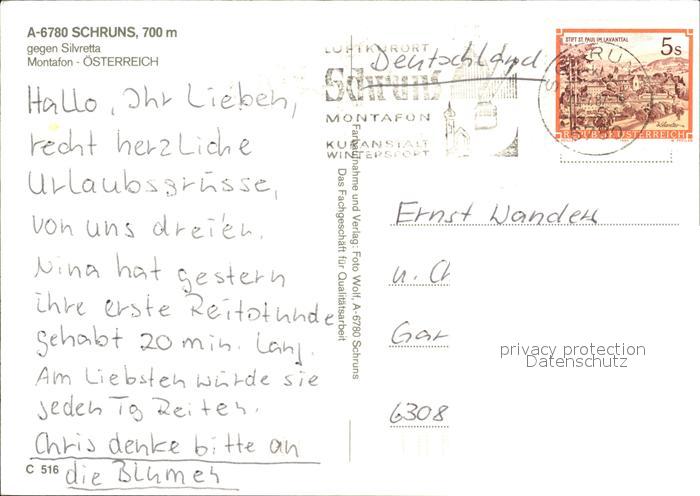 A-6780 SCHRUNS, 700 m
gegen Silvretta
Montafon - ÖSTERREICH
Hallo, Ihr Lieben,
recht herzliche
Urlaubsgrüsse,
von uns dreien.
Nina hat gestern
ihre erste Reitstunde
gehabt 20 min. lang.
Am Liebsten würde sie
jeden Tg Reiten.
Chris denke bitte an
die Blumen
C 516
Farbaufnahme und Verlag: Foto Wolf, A-6780 Schruns
Das Fachgeschäft für Qualitätsarbeit
LUFTKURORT
Schruns
MONTAFON
KURANSTALT
WINTERSPORT
Deutschland
STIFT ST. PAUL IM LAVANTTAL
5s
REPUBLIK ÖSTERREICH
Ernst Wanders
u. Ch
Gar
6308
privacy protection
Datenschutz